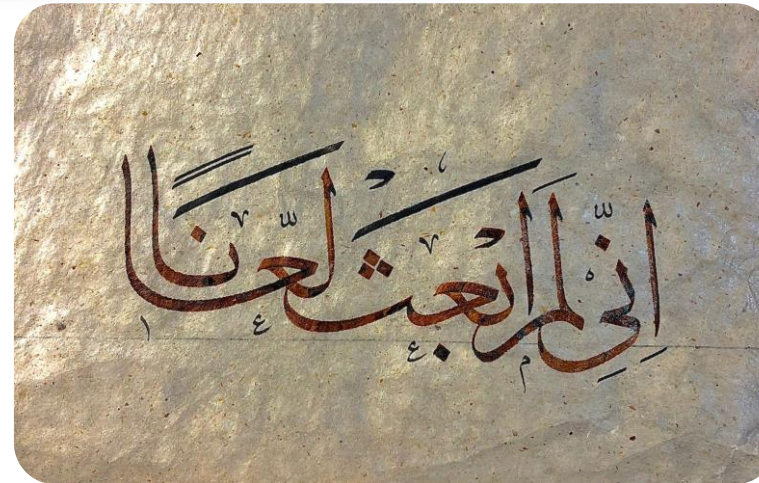 اِنِّي لَمْ اُبْعَثْ لَعَّانًا